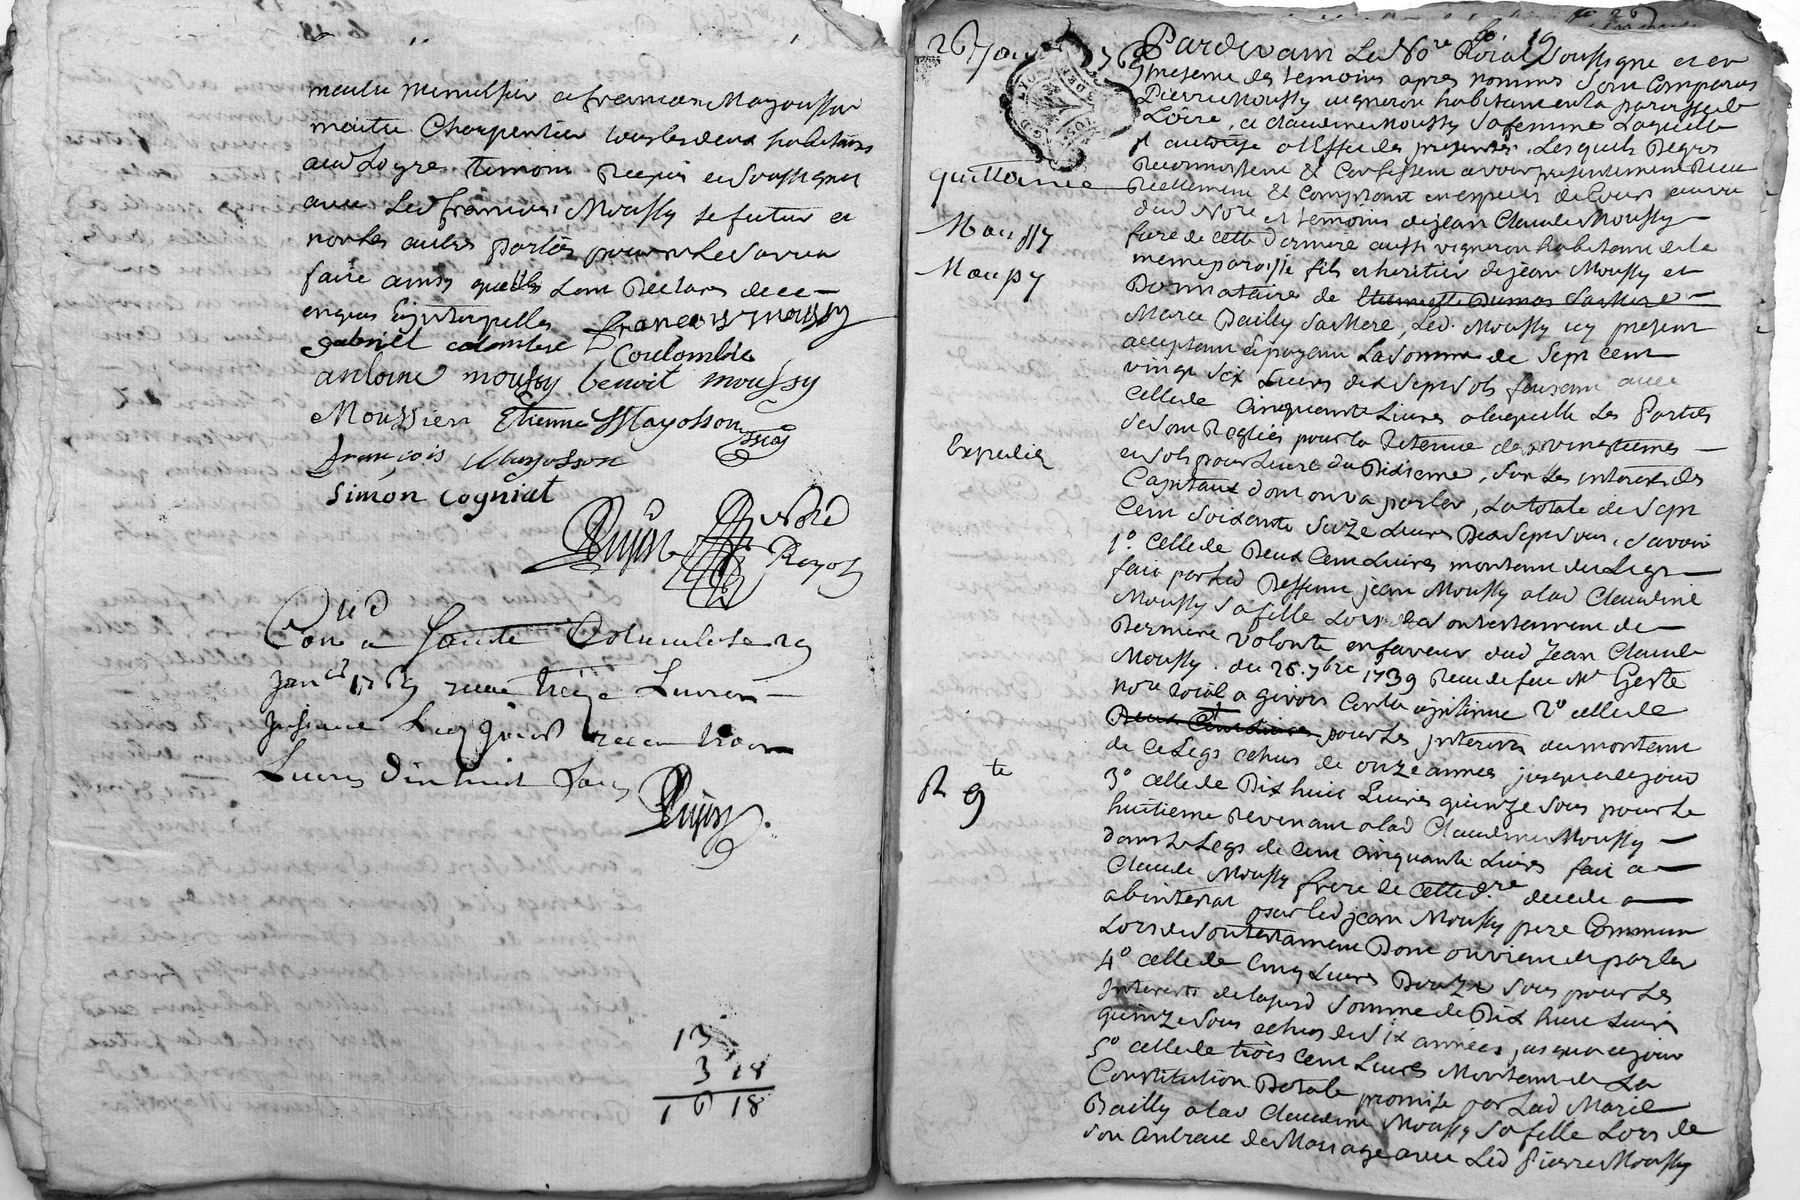 maitre menuisier et francois Mayosson
maitre Charpentier tous les deux habitans
aud Loyre temoins Requis et Soussignes
avec Led francois Moussy le futur et
non les autres parties pour ne le savoir
faire ainsy quelles l'ont Declaré de ce
enquis & interpellés francois moussy
gabriel colombet Coulombet
antoine moussy benoit moussy
Moussier Etienne Mayosson
francois Mayosson
Simon Cogniat
Nore
Royal
Con a Sainte Colombe le 29
janer 1769 recu treize Livres
insinué Led jour recu trois
Livres dix huit sous
13
3 18
16 18
26 Janv 1769
quittance
Moussy
Moussy
Expedié
R 9te
Pardevant Le Nore Roial Soussigné et en
presence des temoins apres nommés Sont Comparus
Pierre Moussy vigneron habitant en la paroisse de
Loire, et claudine Moussy Sa femme Laquelle
il autorise a l'Effet des presentes, Lesquels De gré
Reconnoissent & Confessent avoir presentement Recu
Reellement & Comptant en especes de Cours au vu
dud Nore et temoins de jean Claude Moussy
frere de cette Derniere aussi vigneron habitant de la
meme paroisse fils et heritier de jean Moussy et
Donnataire de
Marie Bailly Sa Mere, Led. Moussy icy present
acceptant & payant La Somme de Sept cent
vingt six Livres dix sept sols faisant avec
Celle de Cinquante Livres a laquelle Les Parties
Se sont Reglées pour la Retenue des vingtiemes
et sols pour Livre du Dixieme, Sur Les interets des
Capitaux dont on va parler, La totale de Sept
Cent Soixante Seize Livres Dix sept sous, Savoir
1o. Celle de Deux Cent Livres montant du Legs
fait par Led Deffunt jean Moussy a lad Claudine
Moussy Sa fille Lors de Son testament de
Derniere Volonté en faveur dud Jean Claude
Moussy du 26. 7bre 1739 Recu de feu Me Geste
nore roial a givors Controlé & insinué 2o celle de
Deux Cent Livres pour Les interets du montant
de Ce Legs echus de onze années jusqu'a ce jour
3o celle de Dix huit Livres quinze sous pour Le
huitieme Revenant a lad Claudine Moussy
dans Le Legs de Cent Cinquante Livres fait a
Claude Moussy frere de cette dre decedé
abintestat par Led jean Moussy pere Commun
Lors de Son testament Dont on vient de parler
4o celle de Cinq Livres Douze sous pour Les
Interets de lad Somme de Dix huit Livres
quinze sous echus de Six années jusqu'a ce jour
5o celle de trois Cent Livres Montant de La
Constitution Dotale promise par Lad Marie
Bailly a lad Claudine Moussy Sa fille Lors de
Son Contrat de Mariage avec Led Pierre Moussy